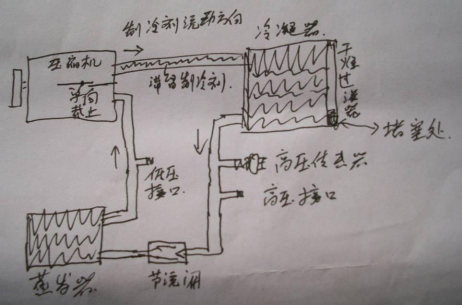 制冷剂流动方向
冷凝器
压缩机
单向
截止
滞留制冷剂
干燥过滤器
堵塞处
低压
接口
高压传感器
高压接口
蒸发器
节流阀